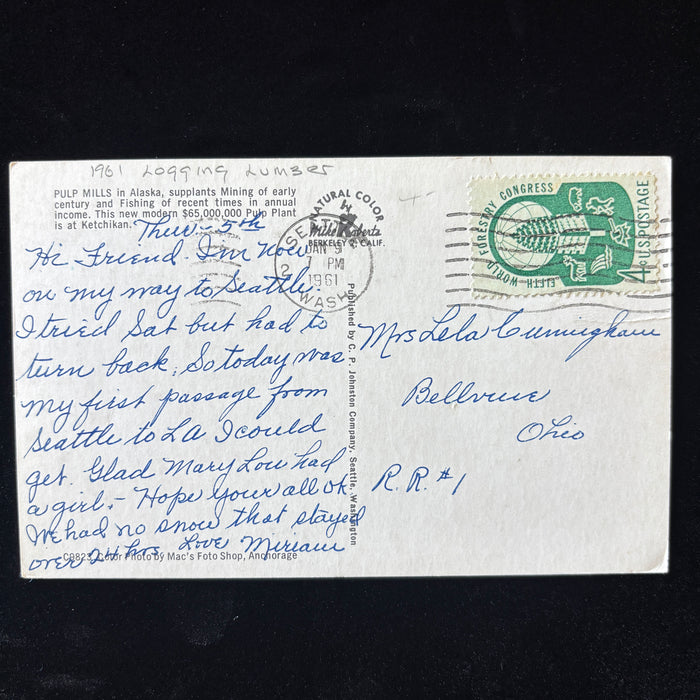 1961 Logging Lumber
PULP MILLS in Alaska, supplants Mining of early
century and Fishing of recent times in annual
income. This new modern $65,000,000 Pulp Plant
is at Ketchikan.
Thur - 5th
Hi Friend. I'm now
on my way to Seattle.
I tried Sat but had to
turn back. So today was
my first passage from
Seattle to LA I could
get. Glad Mary Lou had
a girl. - Hope your all ok.
We had no snow that stayed
over 24 hrs Love Miriam
C9823 Color Photo by Mac's Foto Shop, Anchorage
NATURAL COLOR
Mike Roberts
BERKELEY 2, CALIF.
JAN 9
PM
1961
WASH
Published by C. P. Johnston Company, Seattle, Washington
FIFTH WORLD FORESTRY CONGRESS
4¢ U.S. POSTAGE
Mrs Lela Cunningham
Bellvue
Ohio
R.R. #1